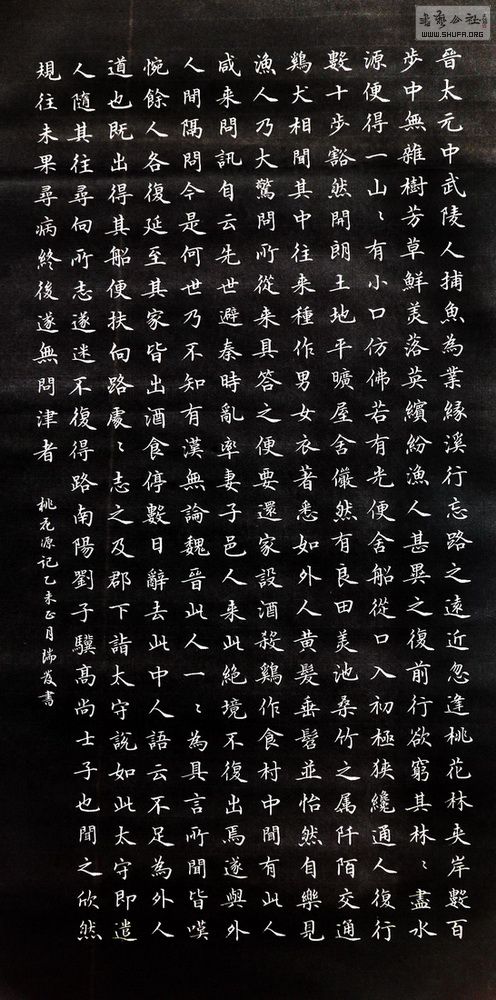 晉太元中武陵人捕魚為業緣溪行忘路之遠近忽逢桃花林夹岸數百
步中無雜樹芳草鮮美落英繽紛漁人甚異之復前行欲窮其林〻盡水
源便得一山〻有小口仿佛若有光便舍船從口入初極狹纔通人復行
數十步豁然開朗土地平曠屋舍儼然有良田美池桑竹之属阡陌交通
鷄犬相聞其中往来種作男女衣著悉如外人黄髮垂髫並怡然自樂見
漁人乃大驚問所從来具答之便要還家設酒殺鷄作食村中聞有此人
咸来問訊自云先世避秦時亂率妻子邑人来此絕境不復出焉遂與外
人間隔問今是何世乃不知有漢無論魏晉此人一〻為具言所聞皆嘆
惋餘人各復延至其家皆出酒食停數日辭去此中人語云不足為外人
道也既出得其船便扶向路處〻志之及郡下詣太守說如此太守即遣
人隨其往尋向所志遂迷不復得路南陽劉子驥高尚士子也聞之欣然
規往未果尋病終後遂無問津者
桃花源記乙未正月瑞發書
書藝公社
WWW.SHUFA.ORG